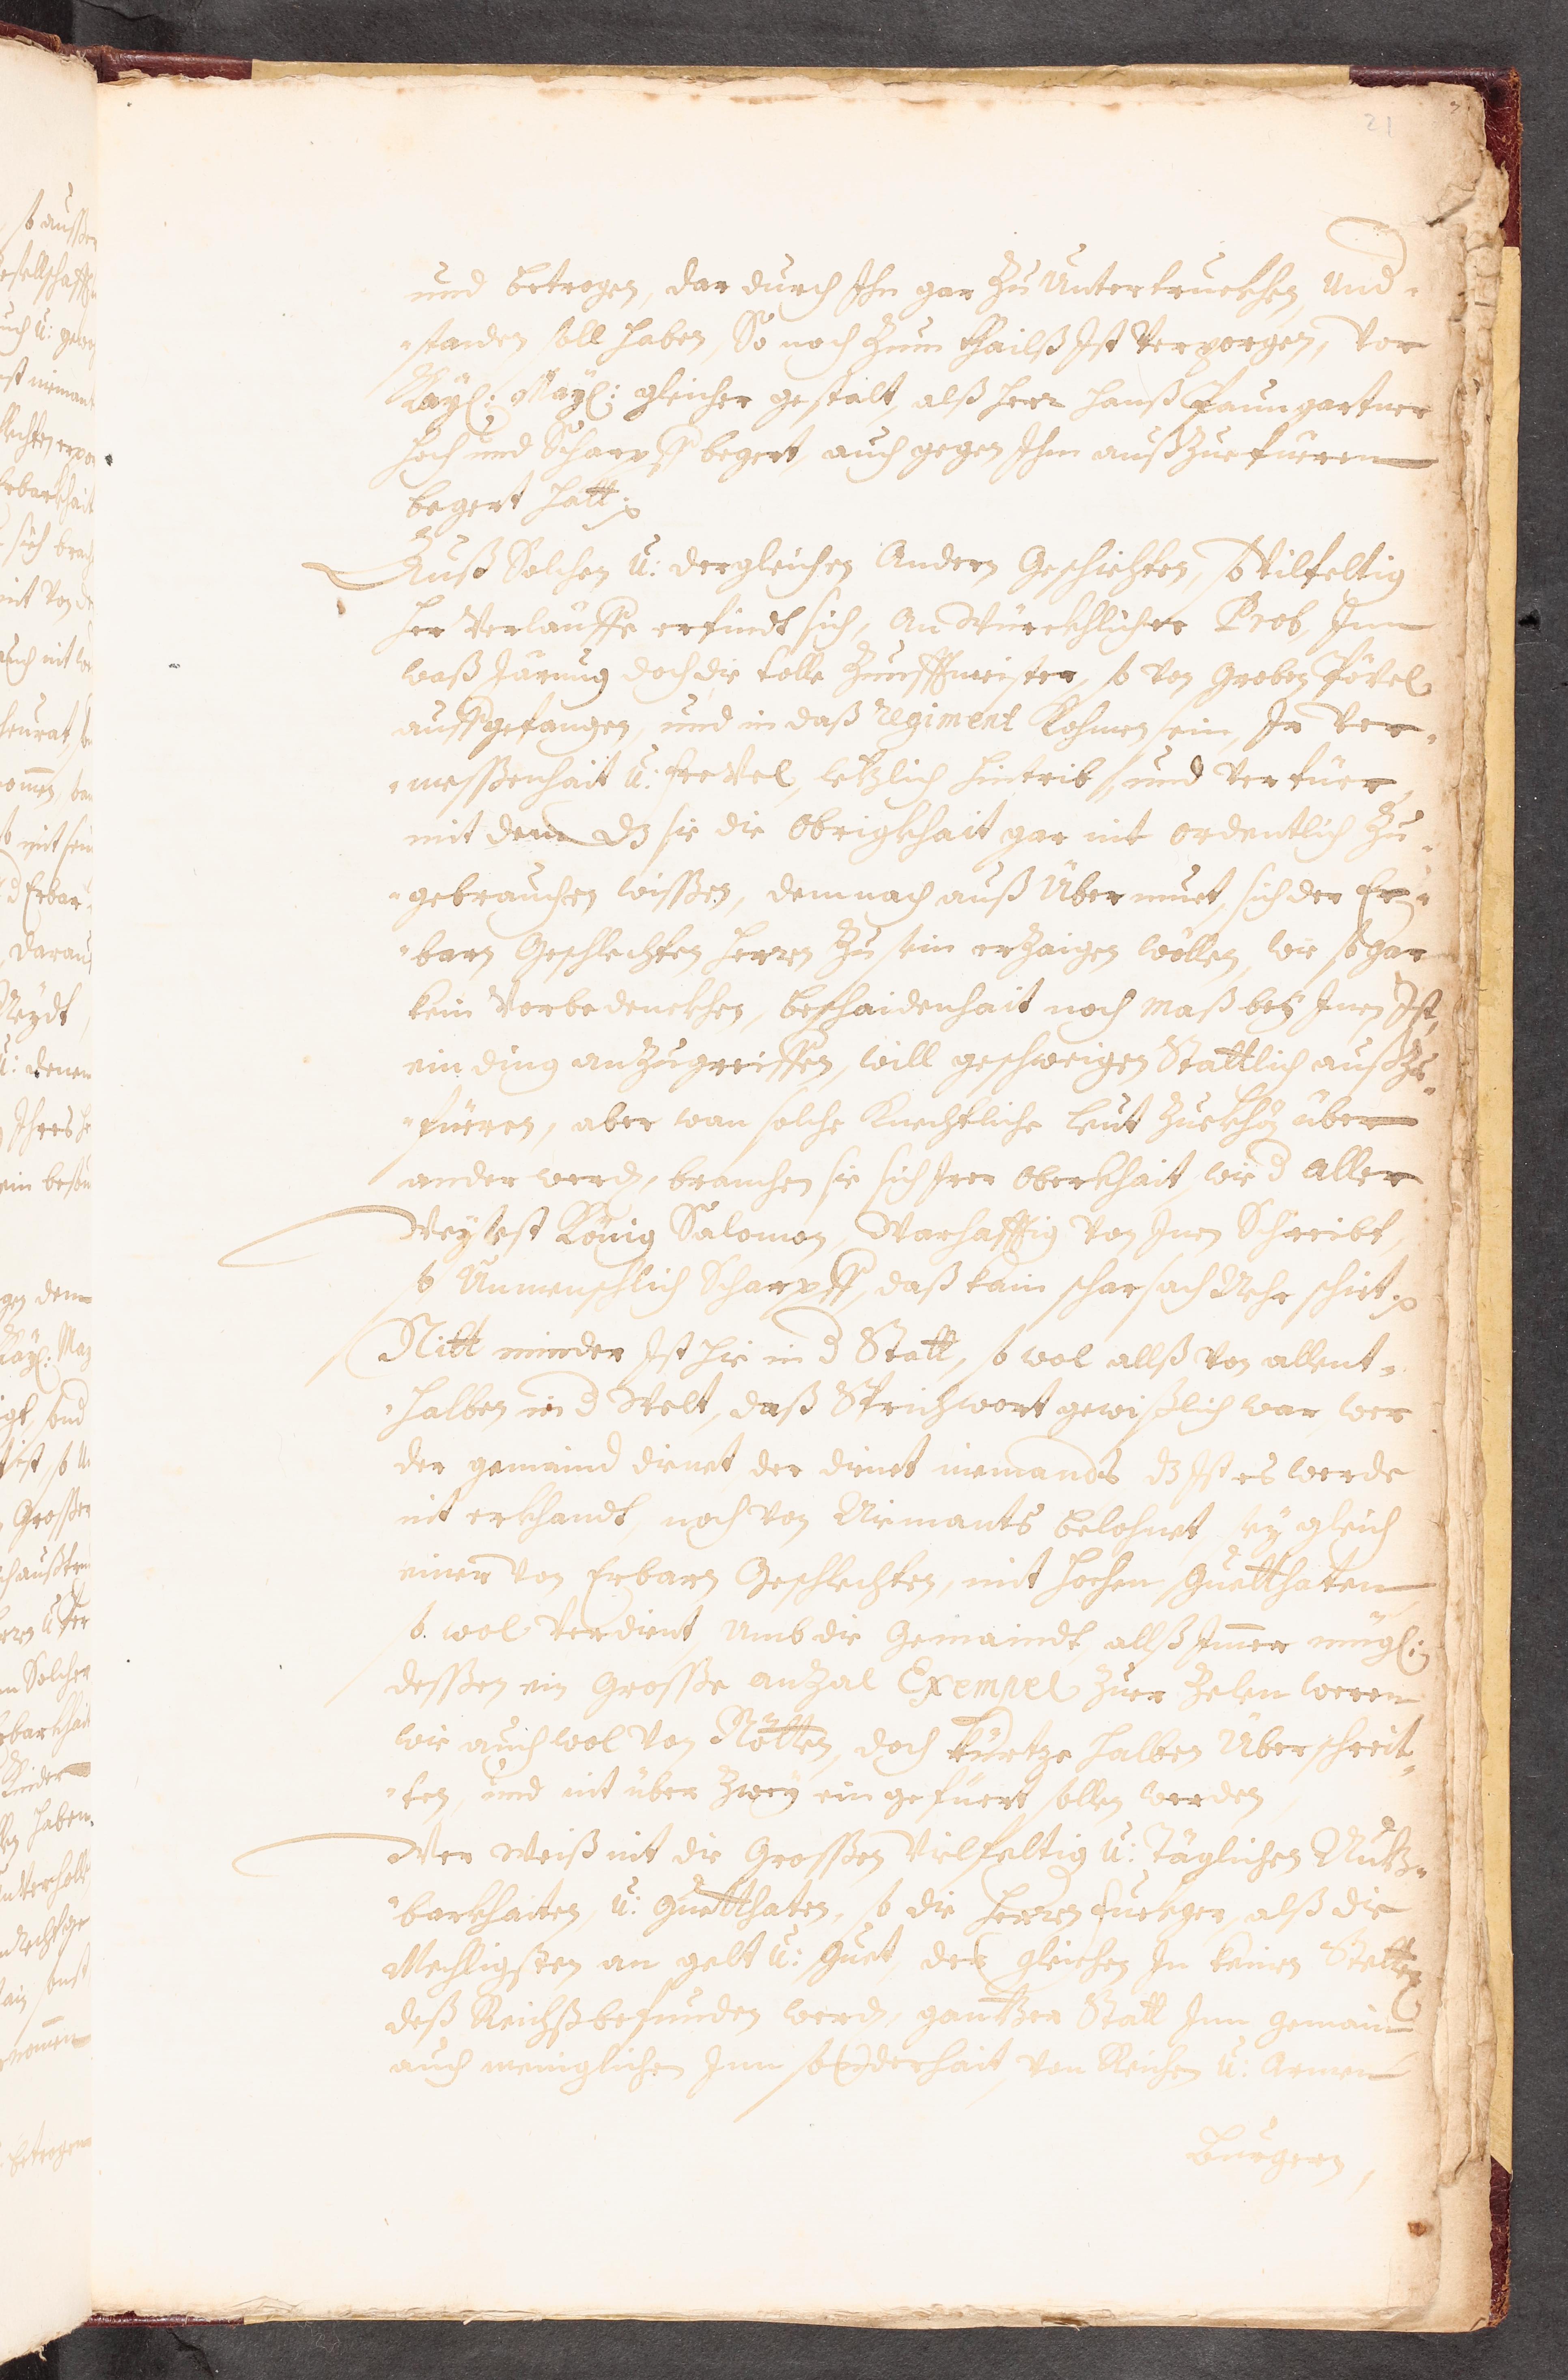 21
und betrogen, dar durch Ihn gar zu Untertruckhen, Und-
standen soll haben, So noch zum thailß Ist Verporgen, Vor
Kayl: Mayl: gleicher gestalt, alß herr Hanß Paumgartner
hoch und Scharpff begert, auch gegen Ihm außzuefüeren
begert hatt.
Auß Solchen U: dergleichen Andern Geschichten, so Vilfeltig
her Verlauffe erfindt sich, An Würckhlicher Prob, Inn
waß Irrung doch die tolle Zunfftmeister, so Von Groben Pövel
auffgefangen, und in daß regiment Kohmen sein, Ir Ver-
messenhait U: freVel, letzlich hintrib, und Verfüer
mit dem dz sie die Obrigkhait gar nit ordentlich zu-
gebrauchen wissen, demnach auß Übermuet, sich der Er-
barn Geschlechten herren zu sein erzaigen wöllen, wie so gar
kein Vorbedenckhen, beschaidenhait noch maß beÿ Inen Ist,
ein ding anzugreiffen, will geschweigen Stattlich außzu-
füeren, aber wan solche Knechtliche leut über
ander werden, brauchen sie sich Irer Oberkhait, wie d aller
Weysest König Salomon, Warhafftig Von Inen Schreibt,
so Unmenschlich Scharpff, daß kain scharsach Mehr schirt.
Nitt minder Ist hie in d Statt, so wol allß Von allent-
halben in d Welt, daß Sprichwort gewißlich war, wer
der gemaind dienet der dienet niemands dz Ist es werde
nit erkhandt, noch Von Niemants belohnet, seÿ gleich
einer Von Erbarn Geschlechten, mit hochen Guetthaten
so wol Verdient, Umb die Gemaindt, allß Imer mügl:
dessen ein Grosse anzal Exempel zuer Zelen weren
wie auch wol Von Nötten, doch kürtze halben Überschreit-
ten, und nit über zweÿ eingefüert sollen werden
Wer Weiß nit die Grossen Vielfeltig U: Täglichen Nutz-
barkhaiten, U: Guetthaten, so die Herren Fuckger, alß die
Mechtigsten an gelt U: Guet, des gleichen In keinen Stetten
deß Reichß befunden werden, gantzer Statt Inn gemain
auch meniglichen Inn sonderhait, Von Reichen U: Armen
Burgern,